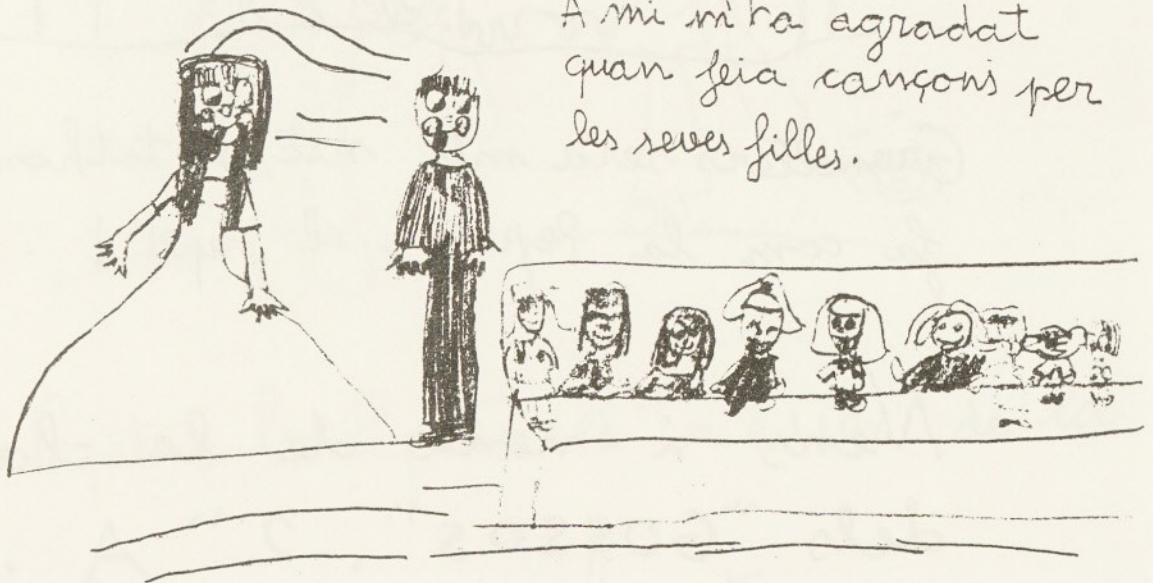 A mi m'ha agradat
quan feia cançons per
les seves filles.